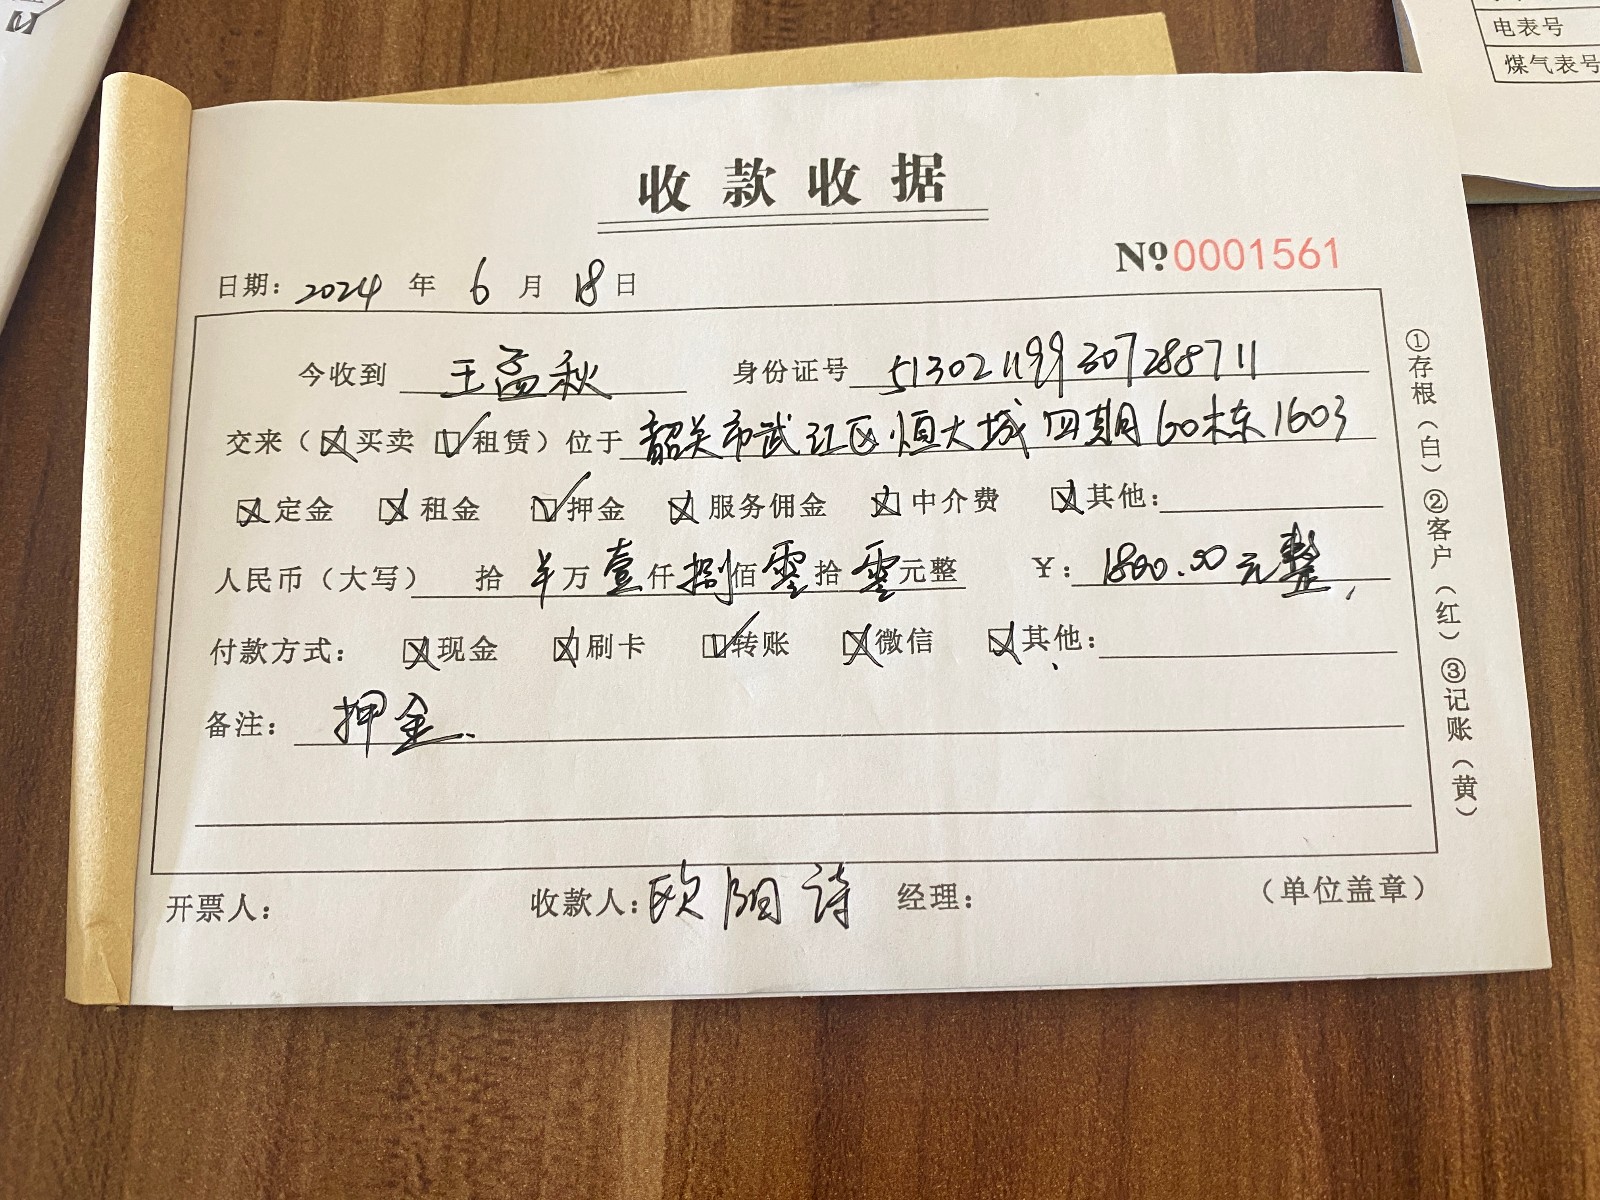 电表号
煤气表号
收款收据
№0001561
日期: 2024 年 6 月 18 日
今收到 王孟秋 身份证号 513021199307288711
交来（☒买卖 ☑租赁）位于 韶关市武江区恒大城四期60栋1603
☒定金 ☒租金 ☑押金 ☒服务佣金 ☒中介费 ☒其他:
人民币（大写） 拾 万 壹仟 捌佰 零拾 零元整 ¥: 1800.00元整
付款方式: ☒现金 ☒刷卡 ☑转账 ☒微信 ☒其他:
备注: 押金.
开票人: 收款人: 欧阳诗 经理: （单位盖章）
①存根（白）②客户（红）③记账（黄）